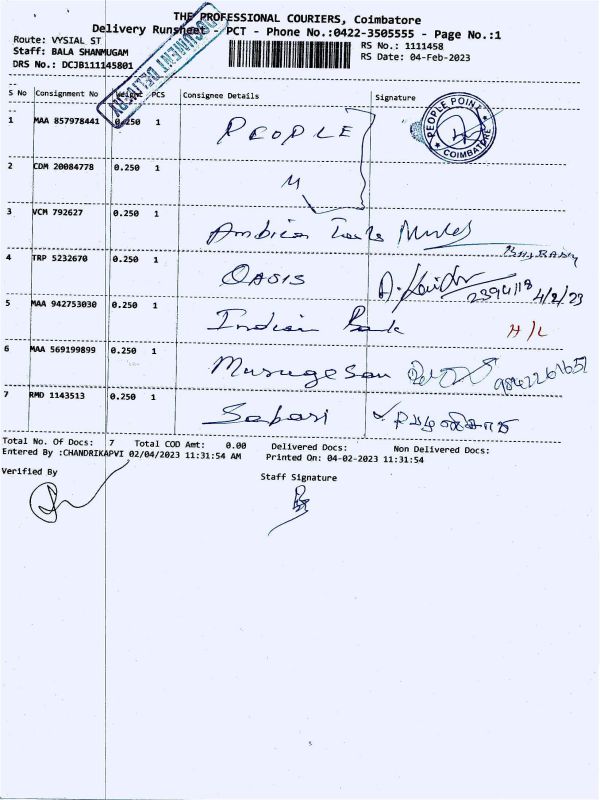 THE PROFESSIONAL COURIERS, Coimbatore
Delivery Runsheet - PCT - Phone No.:0422-3505555 - Page No.:1
Route: VYSIAL ST
RS No.: 1111458
Staff: BALA SHANMUGAM
RS Date: 04-Feb-2023
DRS No.: DCJB111145801
DOCUMENT DELIVERY
S No Consignment No Weight PCS Consignee Details Signature
1 MAA 857978441 0.250 1 PEOPLE
PEOPLE POINT
COIMBATORE
2 CDM 20084778 0.250 1 4
3 VCM 792627 0.250 1
4 TRP 5232670 0.250 1 OASIS 4/2/23
5 MAA 942753030 0.250 1 Indian Bank H/L
6 MAA 569199899 0.250 1 Murugesan
7 RMD 1143513 0.250 1 Sabari
Total No. Of Docs: 7 Total COD Amt: 0.00 Delivered Docs: Non Delivered Docs:
Entered By :CHANDRIKAPVI 02/04/2023 11:31:54 AM Printed On: 04-02-2023 11:31:54
Verified By
Staff Signature